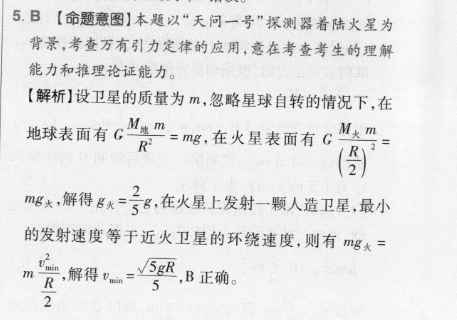 5. B 【命题意图】本题以“天问一号”探测器着陆火星为
背景,考查万有引力定律的应用,意在考查考生的理解
能力和推理论证能力。
【解析】设卫星的质量为 m,忽略星球自转的情况下,在
地球表面有 G\frac{M_{地}m}{R^2}=mg,在火星表面有 G\frac{M_{火}m}{\left(\frac{R}{2}\right)^2}=
mg_{火},解得 g_{火}=\frac{2}{5}g,在火星上发射一颗人造卫星,最小
的发射速度等于近火卫星的环绕速度,则有 mg_{火}=
m\frac{v_{min}^2}{\frac{R}{2}},解得 v_{min}=\frac{\sqrt{5gR}}{5},B 正确。